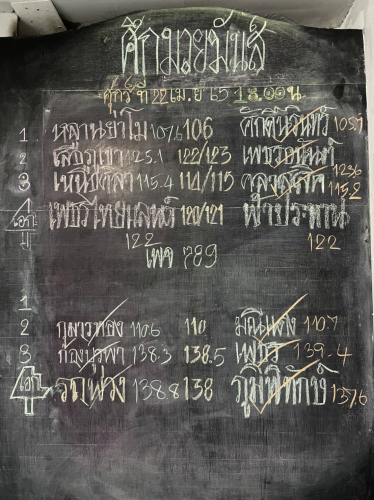 ศึกมวยมันส์
ศุกร์ ที่ 22 เม.ย 65 18.00น
1 หลานย่าโม 107.6 106 ศักดิ์นรินทร์ 105.7
2 เสือภูเขา 125.1 122/123 เพชรอนันต์ 123.6
3 เหนือศิลา 115.4 114/115 115.2
4 เอก เพชรไทยแลนด์ 120/121 ฟ้าประทาน
122 122
เพจ 789
1
2 กุลาวทอง 110.6 110 มณีแดง 110.7
3 ก้องบูรพา 138.3 138.5 เพชร 139.4
4 เอก รถพ่วง 138.8 138 ภูมิพิทักษ์ 137.6